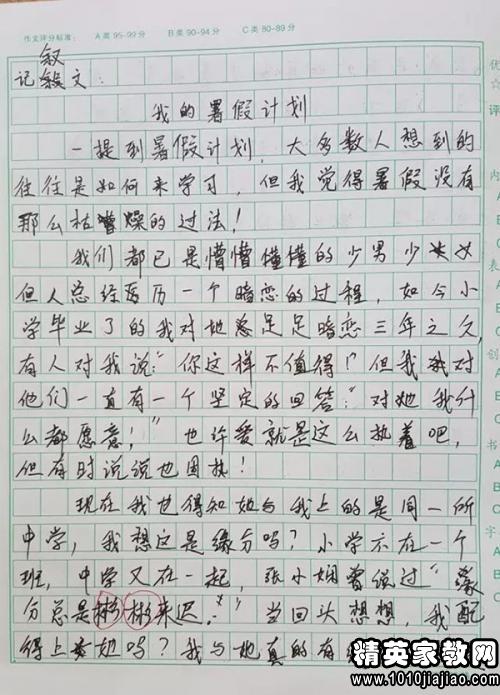 作文评分标准： A类 95-99分 B类 90-94分 C类 80-89分
优
叙
记 文：
我的暑假计划
评
一提到暑假计划，大多数人想到的
往往是如何来学习，但我觉得暑假没有
内
那么枯燥的过法！
我们都已是懵懵懂懂的少男少女
表
但人总经历历一个暗恋的过程，如今小
学毕业了的我对她足足暗恋三年之久，
有人对我说：“你这样不值得！”但我对
创
他们一直有一个坚定的回答：“对她我什
么都愿意！”也许爱就是这么执着吧，
书
但有时说说也固执！
现在我也得知她与我上的是同一所
字
中学，我想这是缘分吗？小学亦在一个
班，中学又在一起，张小娴曾说过“缘
分总是彬彬来迟。”当回头想想，我配
得上她吗？我与她真的有
精英家教网
www.1010jiajiao.com